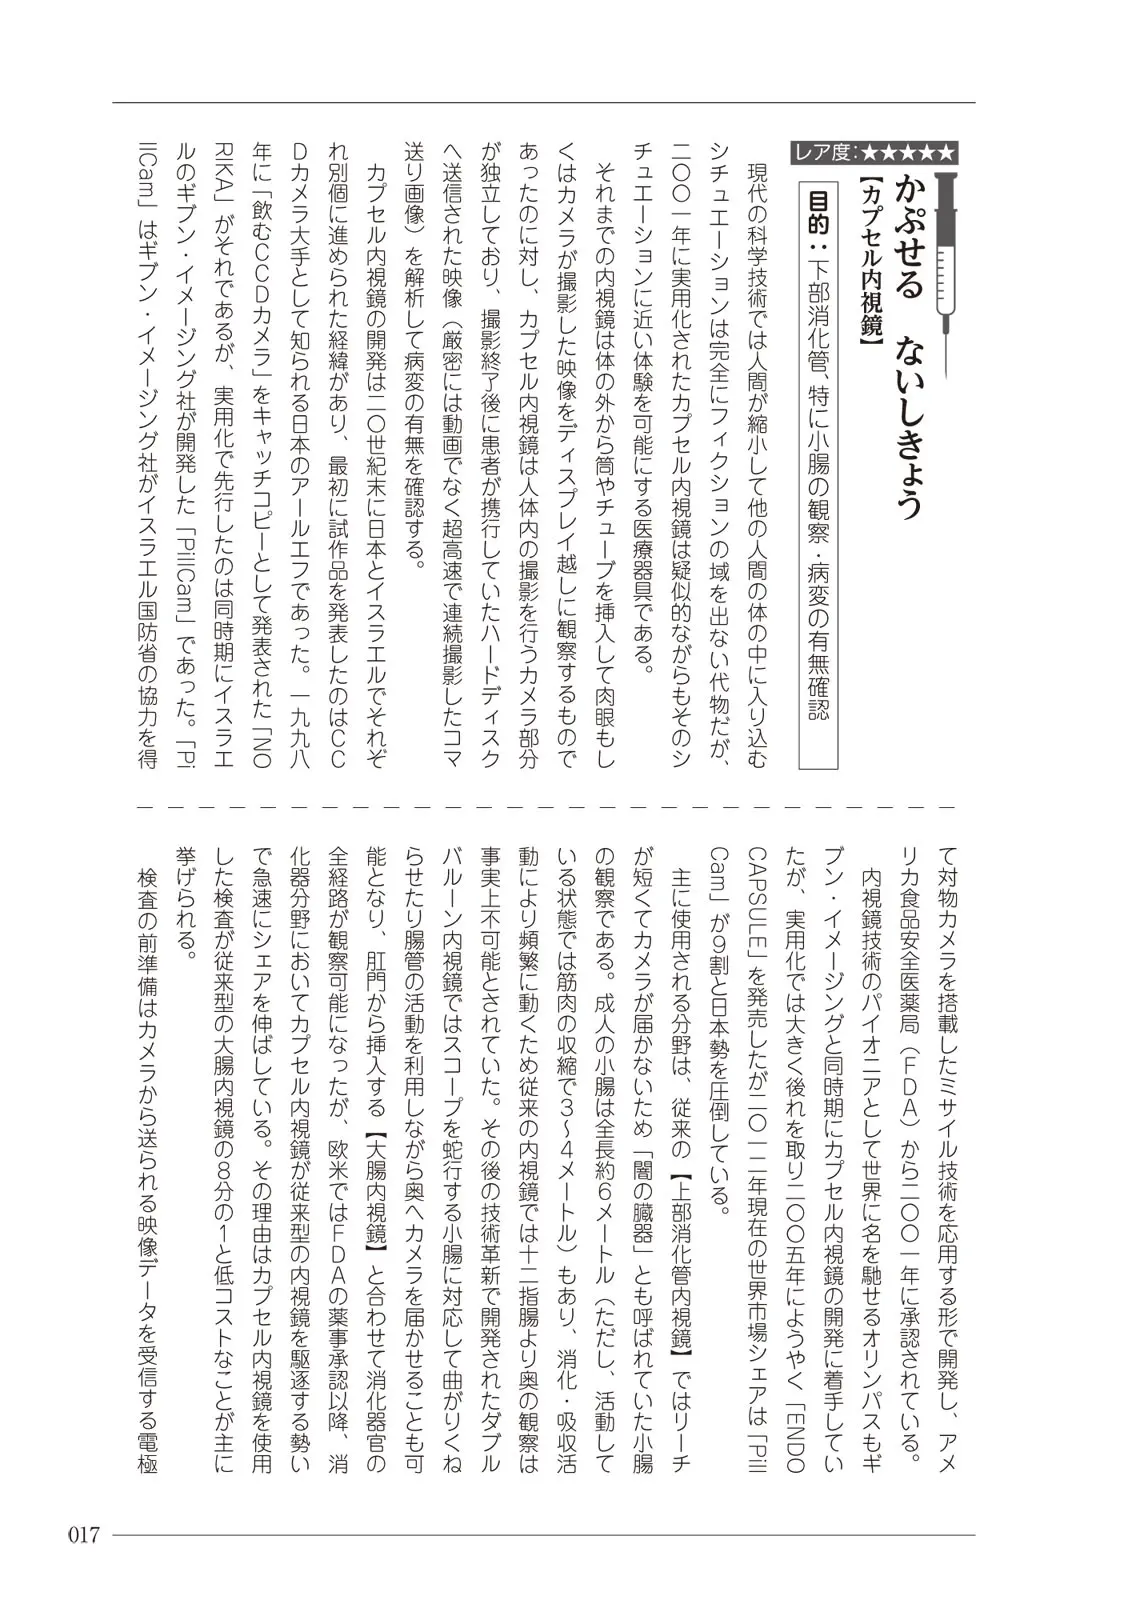 レア度：★★★★★
かぷせる　ないしきょう
【カプセル内視鏡】
目的：下部消化管、特に小腸の観察・病変の有無確認
現代の科学技術では人間が縮小して他の人間の体の中に入り込む
シチュエーションは完全にフィクションの域を出ない代物だが、
二〇〇一年に実用化されたカプセル内視鏡は疑似的ながらもそのシ
チュエーションに近い体験を可能にする医療器具である。
それまでの内視鏡は体の外から筒やチューブを挿入して肉眼もし
くはカメラが撮影した映像をディスプレイ越しに観察するもので
あったのに対し、カプセル内視鏡は人体内の撮影を行うカメラ部分
が独立しており、撮影終了後に患者が携行していたハードディスク
へ送信された映像（厳密には動画でなく超高速で連続撮影したコマ
送り画像）を解析して病変の有無を確認する。
カプセル内視鏡の開発は二〇世紀末に日本とイスラエルでそれぞ
れ別個に進められた経緯があり、最初に試作品を発表したのはＣＣ
Ｄカメラ大手として知られる日本のアールエフであった。一九九八
年に「飲むＣＣＤカメラ」をキャッチコピーとして発表された「NO
RIKA」がそれであるが、実用化で先行したのは同時期にイスラエ
ルのギブン・イメージング社が開発した「PillCam」であった。「Pi
llCam」はギブン・イメージング社がイスラエル国防省の協力を得
て対物カメラを搭載したミサイル技術を応用する形で開発し、アメ
リカ食品安全医薬局（ＦＤＡ）から二〇〇一年に承認されている。
内視鏡技術のパイオニアとして世界に名を馳せるオリンパスもギ
ブン・イメージングと同時期にカプセル内視鏡の開発に着手してい
たが、実用化では大きく後れを取り二〇〇五年にようやく「ENDO
CAPSULE」を発売したが二〇一二年現在の世界市場シェアは「Pill
Cam」が９割と日本勢を圧倒している。
主に使用される分野は、従来の【上部消化管内視鏡】ではリーチ
が短くてカメラが届かないため「闇の臓器」とも呼ばれていた小腸
の観察である。成人の小腸は全長約６メートル（ただし、活動して
いる状態では筋肉の収縮で３〜４メートル）もあり、消化・吸収活
動により頻繁に動くため従来の内視鏡では十二指腸より奥の観察は
事実上不可能とされていた。その後の技術革新で開発されたダブル
バルーン内視鏡ではスコープを蛇行する小腸に対応して曲がりくね
らせたり腸管の活動を利用しながら奥へカメラを届かせることも可
能となり、肛門から挿入する【大腸内視鏡】と合わせて消化器官の
全経路が観察可能になったが、欧米ではＦＤＡの薬事承認以降、消
化器分野においてカプセル内視鏡が従来型の内視鏡を駆逐する勢い
で急速にシェアを伸ばしている。その理由はカプセル内視鏡を使用
した検査が従来型の大腸内視鏡の８分の１と低コストなことが主に
挙げられる。
検査の前準備はカメラから送られる映像データを受信する電極
017